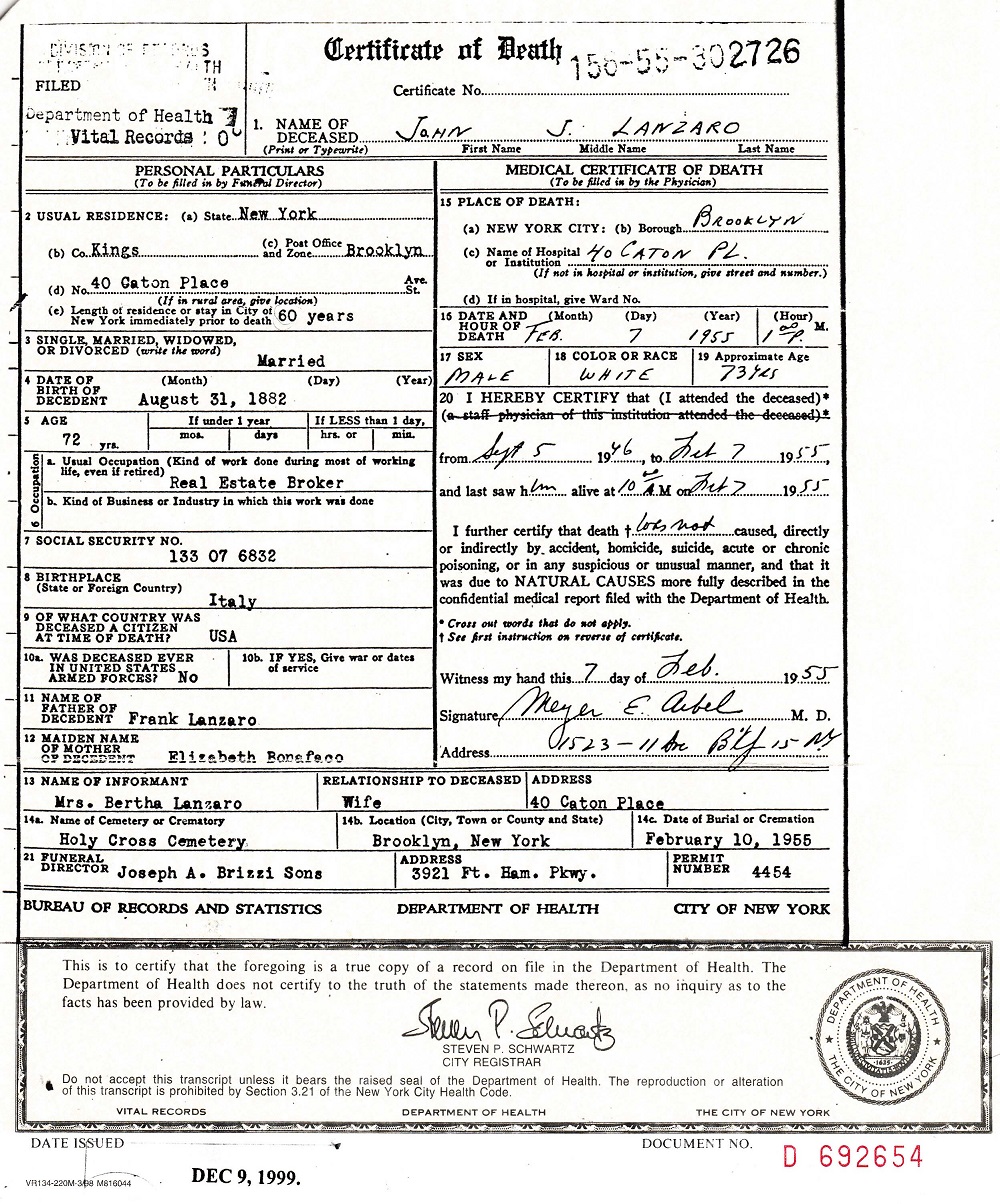 Certificate of Death
156-55-302726
DIVISION OF RECORDS
TH
FILED
Department of Health
Vital Records
Certificate No.
1. NAME OF DECEASED JOHN J. LANZARO
(Print or Typewrite) First Name Middle Name Last Name
PERSONAL PARTICULARS
(To be filled in by Funeral Director)
2 USUAL RESIDENCE: (a) State New York
(b) Co. Kings (c) Post Office and Zone Brooklyn
(d) No. 40 Caton Place Ave. St.
(If in rural area, give location)
(e) Length of residence or stay in City of
New York immediately prior to death 60 years
3 SINGLE, MARRIED, WIDOWED,
OR DIVORCED (write the word)
Married
4 DATE OF BIRTH OF DECEDENT (Month) (Day) (Year)
August 31, 1882
5 AGE If under 1 year If LESS than 1 day,
72 yrs. mos. days hrs. or min.
6 Occupation
a. Usual Occupation (Kind of work done during most of working
life, even if retired)
Real Estate Broker
b. Kind of Business or Industry in which this work was done
7 SOCIAL SECURITY NO.
133 07 6832
8 BIRTHPLACE
(State or Foreign Country)
Italy
9 OF WHAT COUNTRY WAS
DECEASED A CITIZEN
AT TIME OF DEATH? USA
10a. WAS DECEASED EVER
IN UNITED STATES
ARMED FORCES? No
10b. IF YES, Give war or dates
of service
11 NAME OF
FATHER OF
DECEDENT Frank Lanzaro
12 MAIDEN NAME
OF MOTHER
OF DECEDENT Elizabeth Bonafaco
MEDICAL CERTIFICATE OF DEATH
(To be filled in by the Physician)
15 PLACE OF DEATH:
(a) NEW YORK CITY: (b) Borough BROOKLYN
(c) Name of Hospital or Institution 40 CATON PL.
(If not in hospital or institution, give street and number.)
(d) If in hospital, give Ward No.
16 DATE AND HOUR OF DEATH (Month) (Day) (Year) (Hour)
FEB. 7 1955 1 00 P. M.
17 SEX 18 COLOR OR RACE 19 Approximate Age
MALE WHITE 73 YRS
20 I HEREBY CERTIFY that (I attended the deceased)*
(a staff physician of this institution attended the deceased)*
from Sept 5 1946, to Feb 7 1955,
and last saw him alive at 10 00 A M on Feb 7 1955
I further certify that death † was not caused, directly
or indirectly by accident, homicide, suicide, acute or chronic
poisoning, or in any suspicious or unusual manner, and that it
was due to NATURAL CAUSES more fully described in the
confidential medical report filed with the Department of Health.
* Cross out words that do not apply.
† See first instruction on reverse of certificate.
Witness my hand this 7 day of Feb. 1955
Signature Meyer E. M. D.
Address 1523-11 Ave 15 NY
13 NAME OF INFORMANT RELATIONSHIP TO DECEASED ADDRESS
Mrs. Bertha Lanzaro Wife 40 Caton Place
14a. Name of Cemetery or Crematory 14b. Location (City, Town or County and State) 14c. Date of Burial or Cremation
Holy Cross Cemetery Brooklyn, New York February 10, 1955
21 FUNERAL DIRECTOR Joseph A. Brizzi Sons ADDRESS 3921 Ft. Ham. Pkwy. PERMIT NUMBER 4454
BUREAU OF RECORDS AND STATISTICS DEPARTMENT OF HEALTH CITY OF NEW YORK
This is to certify that the foregoing is a true copy of a record on file in the Department of Health. The
Department of Health does not certify to the truth of the statements made thereon, as no inquiry as to the
facts has been provided by law.
Steven P. Schwartz
STEVEN P. SCHWARTZ
CITY REGISTRAR
Do not accept this transcript unless it bears the raised seal of the Department of Health. The reproduction or alteration
of this transcript is prohibited by Section 3.21 of the New York City Health Code.
VITAL RECORDS DEPARTMENT OF HEALTH THE CITY OF NEW YORK
DEPARTMENT OF HEALTH
THE CITY OF NEW YORK
1625
DATE ISSUED
DOCUMENT NO.
D 692654
DEC 9, 1999.
VR134-220M-3/98 M816044